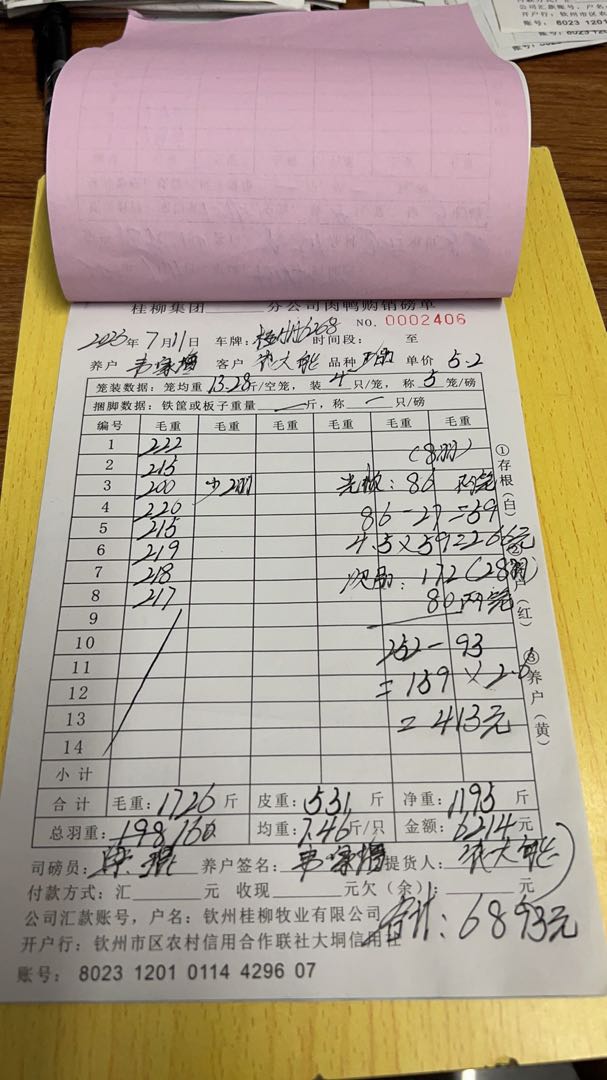 公司汇款账号，户名
开户行：钦州市区农
账号：8023 1201
桂柳集团______分公司肉鸭购销磅单
NO. 0002406
7月11日 车牌： 6268 时间段： 至
养户 韦家增 客户 品种 单价 5.2
笼装数据：笼均重 13.28斤/空笼，装 4 只/笼，称 5 笼/磅
捆脚数据：铁筐或板子重量 一 斤，称 一 只/磅
编号 毛重 毛重 毛重 毛重 毛重 毛重
1 222
2 215 (8羽)
3 200 少2羽 : 86 两笼
4 220 86-27=59
5 215 4.5×59=266元
6 219
7 218 次品: 172 (28羽)
8 217 80两笼
9
10 252-93
11 =159×2.6
12
13 =413元
14
小计
合计 毛重：1726斤 皮重：531斤 净重：1195斤
总羽重： 160 均重：7.46斤/只 金额：6214元
司磅员： 养户签名：韦家增 提货人：
付款方式：汇______元 收现______元欠（余）：______元
公司汇款账号，户名：钦州桂柳牧业有限公司
合计：6893元
开户行：钦州市区农村信用合作联社大垌信用社
账号： 8023 1201 0114 4296 07
①存根（白）
（红）
③养户（黄）